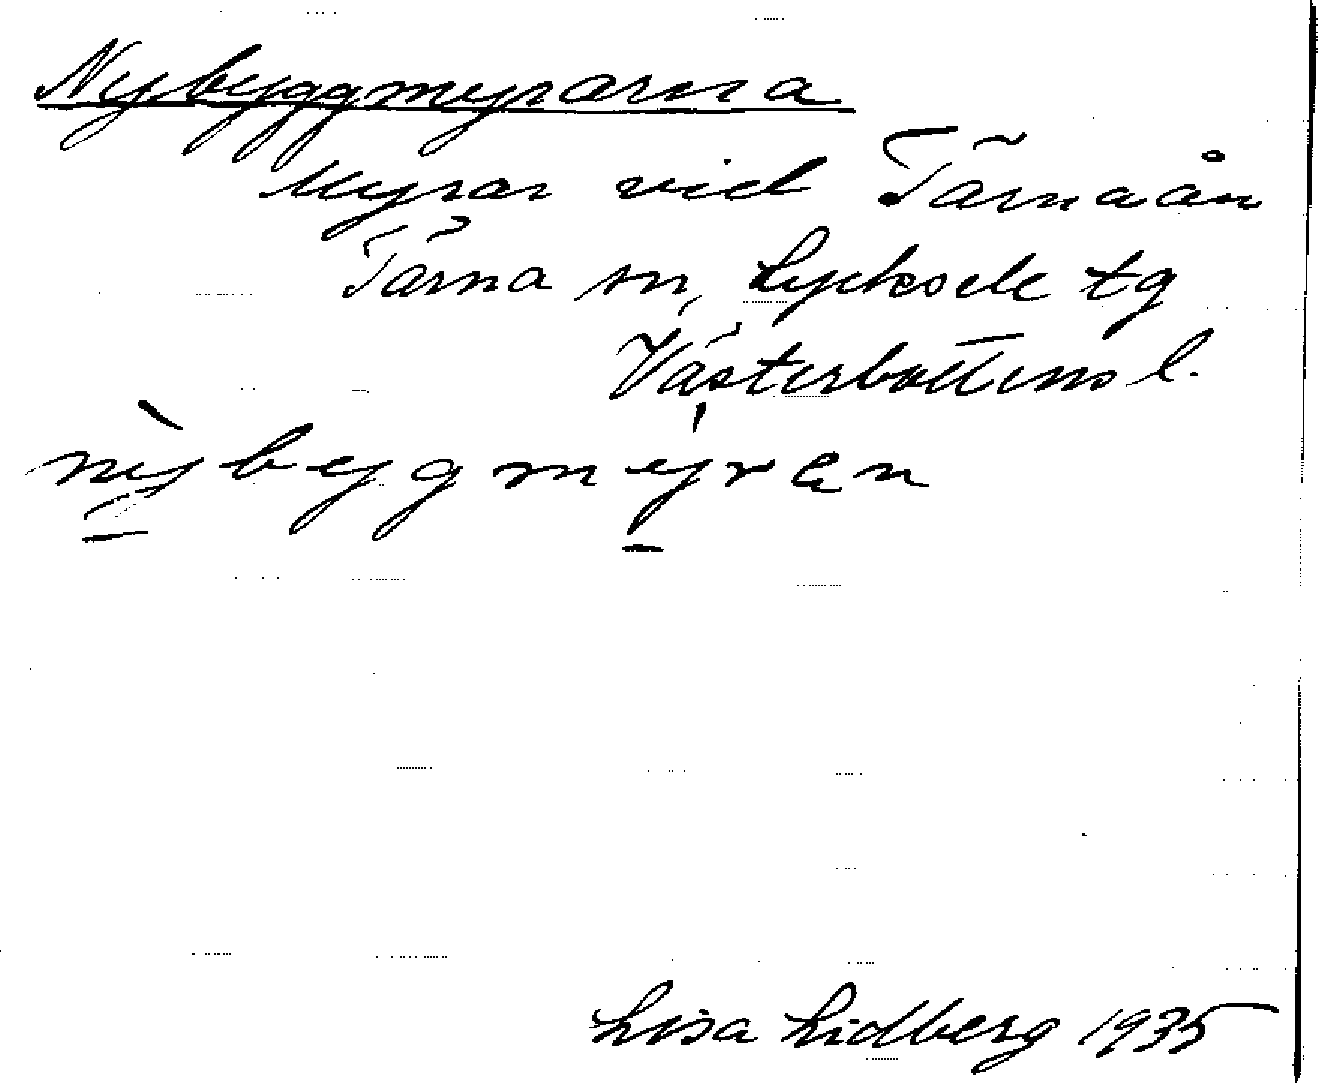 Nybyggmyrarna
Myrar vid Tärnaån
Tärna sn, Lycksele tg
Västerbottens l.
nỳbygmýran
Lisa Lidberg 1935